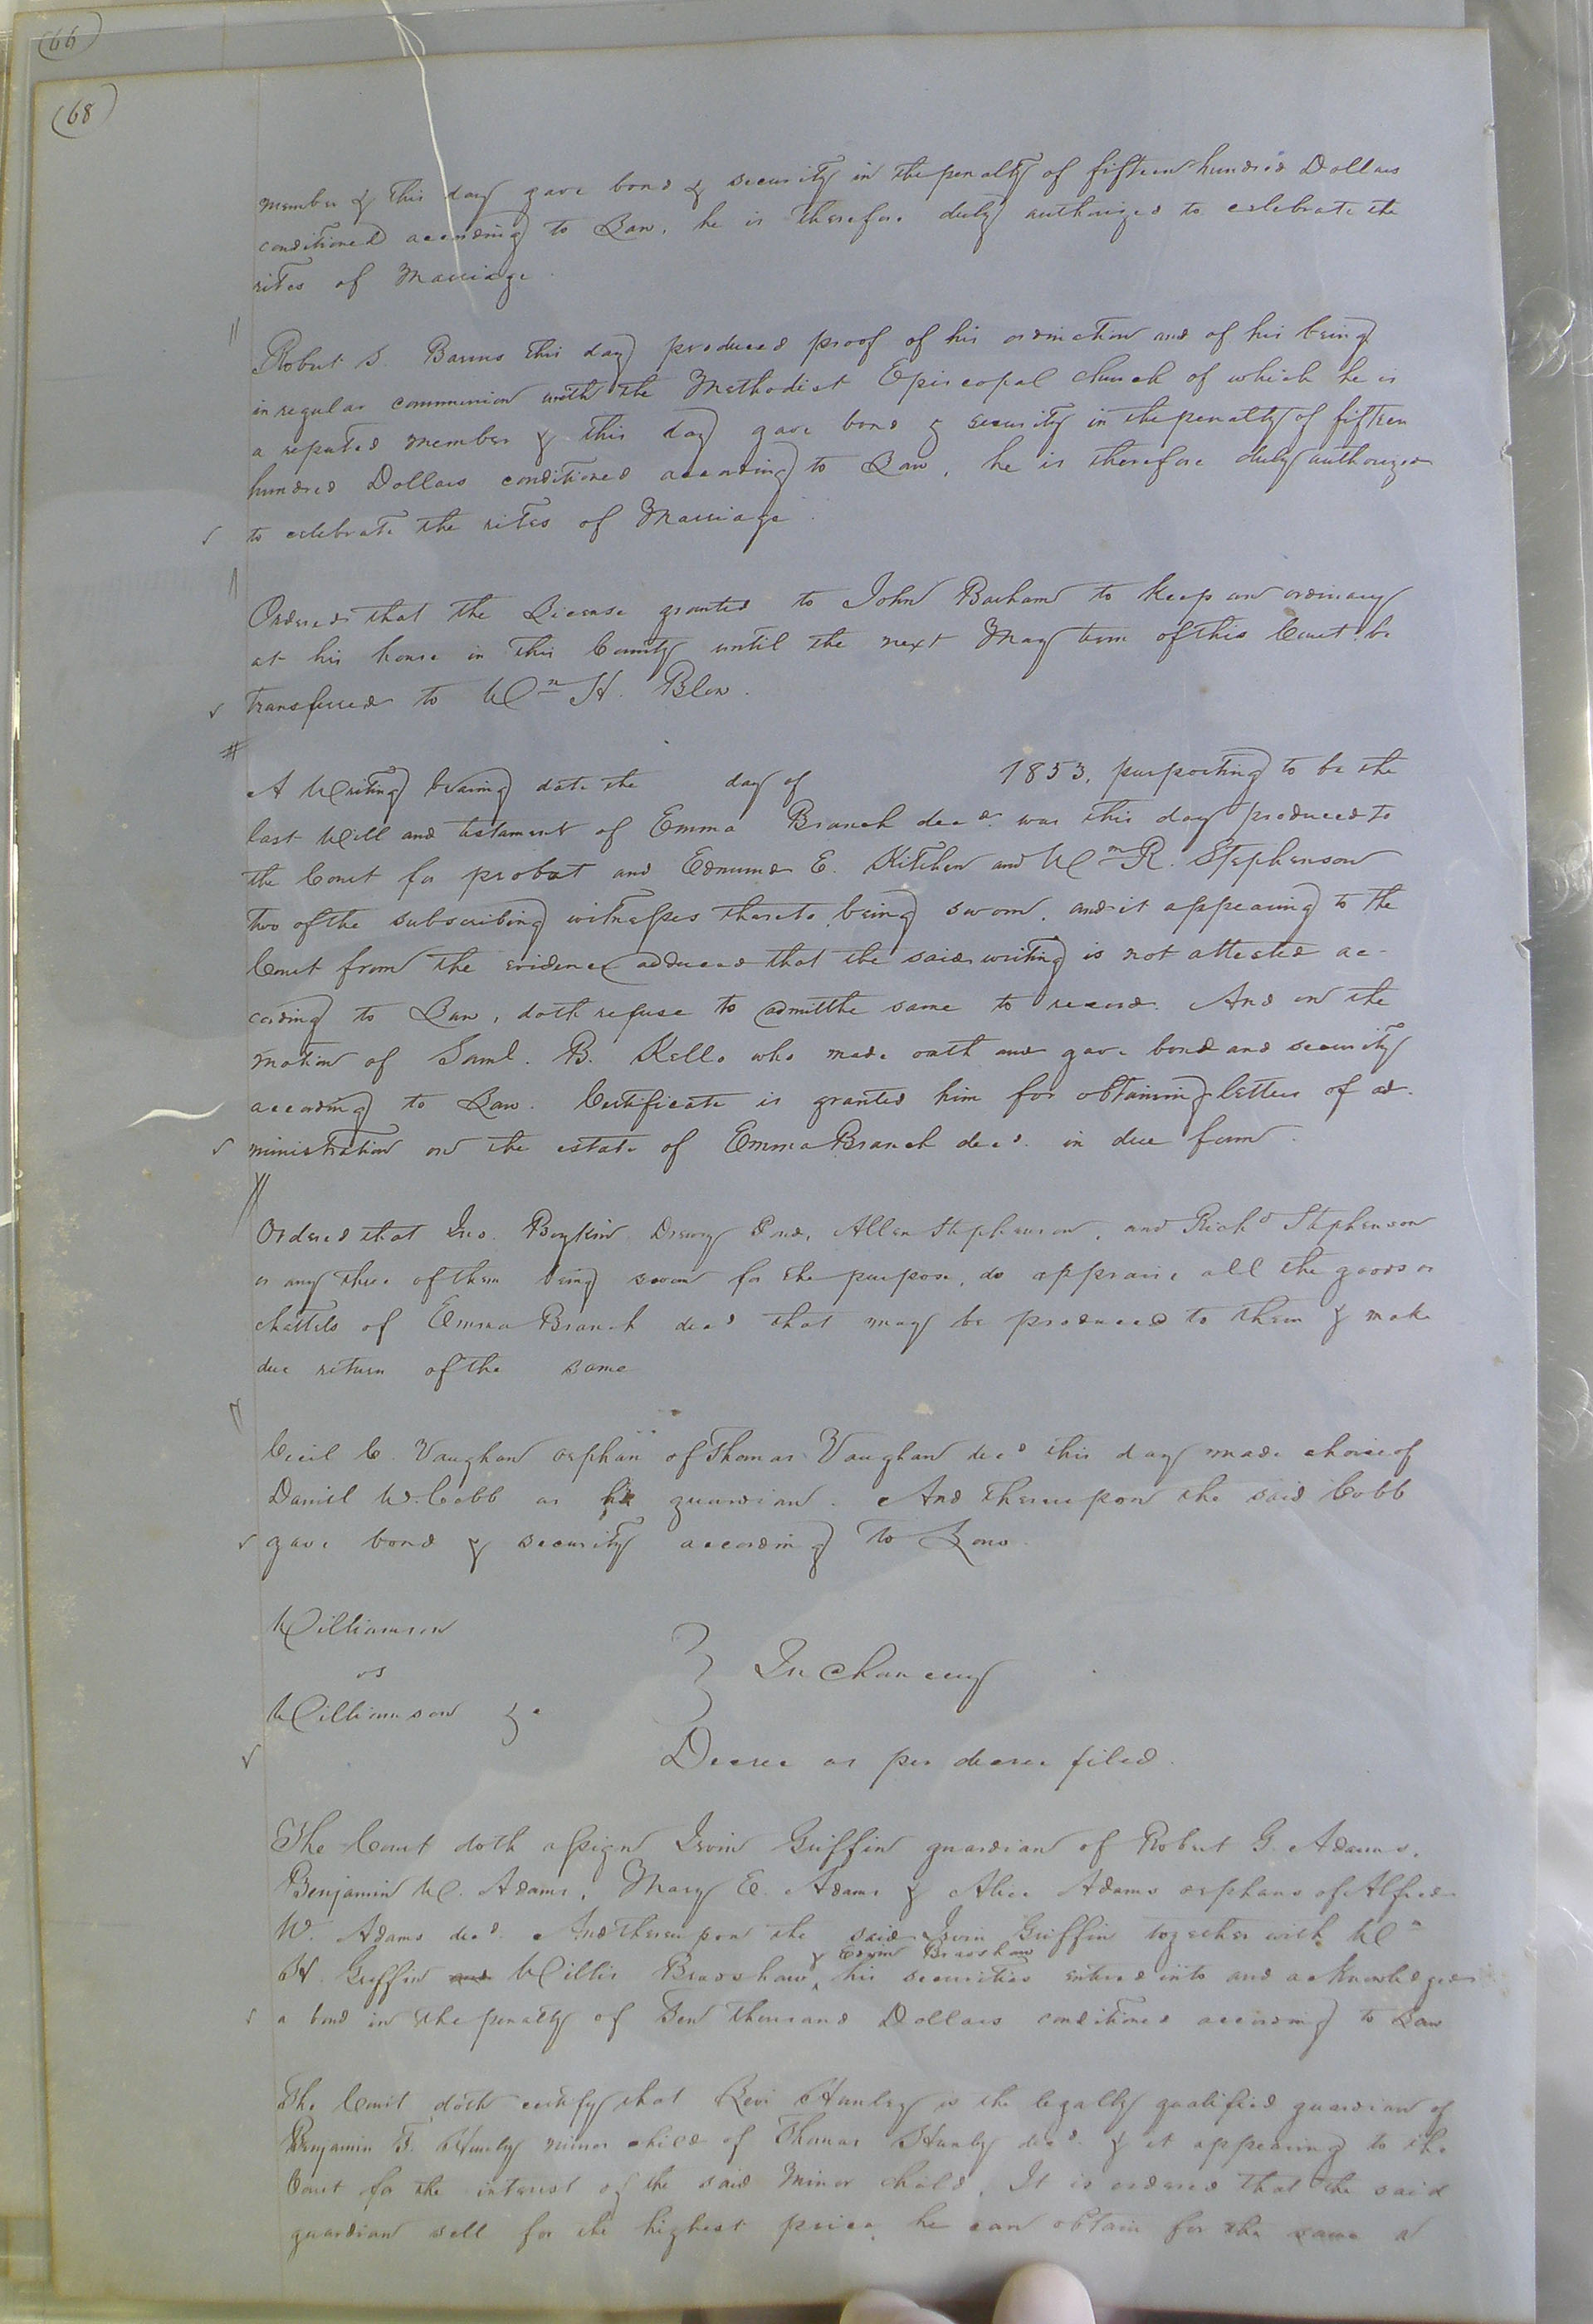 (66)
(68)
member & this day gave bond & security in the penalty of fifteen hundred Dollars
conditioned according to Law, he is therefore duly authorized to celebrate the
rites of Marriage.
Robert S. Barns this day produced proof of his ordination and of his being
in regular communion with the Methodist Episcopal church of which he is
a reputed member & this day gave bond & security in the penalty of fifteen
hundred Dollars conditioned according to Law, he is therefore duly authorized
to celebrate the rites of Marriage.
Ordered that the License granted to John Barham to keep an ordinary
at his house in this County until the next May term of this Court be
transferred to Wm H. Blow.
A Writing bearing date the day of 1853, purporting to be the
last Will and testament of Emma Branch decd. was this day produced to
the Court for probat and Edmund E. Kitchen and Wm R. Stephenson
two of the subscribing witnesses thereto being sworn, and it appearing to the
Court from the evidence adduced that the said writing is not attested ac-
cording to Law, doth refuse to admit the same to record. And on the
motion of Saml. B. Kello who made oath and gave bond and security
according to Law. Certificate is granted him for obtaining letters of ad-
ministration on the estate of Emma Branch decd. in due form.
Ordered that Jno. Boykin Drewry Pond, Allen Stephenson, and Richd Stephenson
or any three of them being sworn for the purpose, do appraise all the goods or
chattels of Emma Branch decd that may be produced to them & make
due return of the same
Cecil C. Vaughan orphan of Thomas Vaughan decd this day made choice of
Daniel W. Cobb as his guardian. And thereupon the said Cobb
gave bond & security according to Law.
Williamson
vs
Williamson &c
} In chancery
Decree as per decree filed.
The Court doth assign Irvin Griffin guardian of Robert G. Adams,
Benjamin W. Adams, Mary E. Adams & Alice Adams orphans of Alfred
W. Adams decd. And thereupon the said Irvin Griffin together with Wm
& Edwin Bradshaw
H. Griffin and Willis Bradshaw, his securities entered into and acknowledged
a bond in the penalty of Ten thousand Dollars conditioned according to Law
The Court doth certify that Levi Hunley is the legally qualified guardian of
Benjamin F. Hunly minor child of Thomas Hunly decd. & it appearing to the
Court for the interest of the said Minor child, It is ordered that the said
guardian sell for the highest price he can obtain for the same a